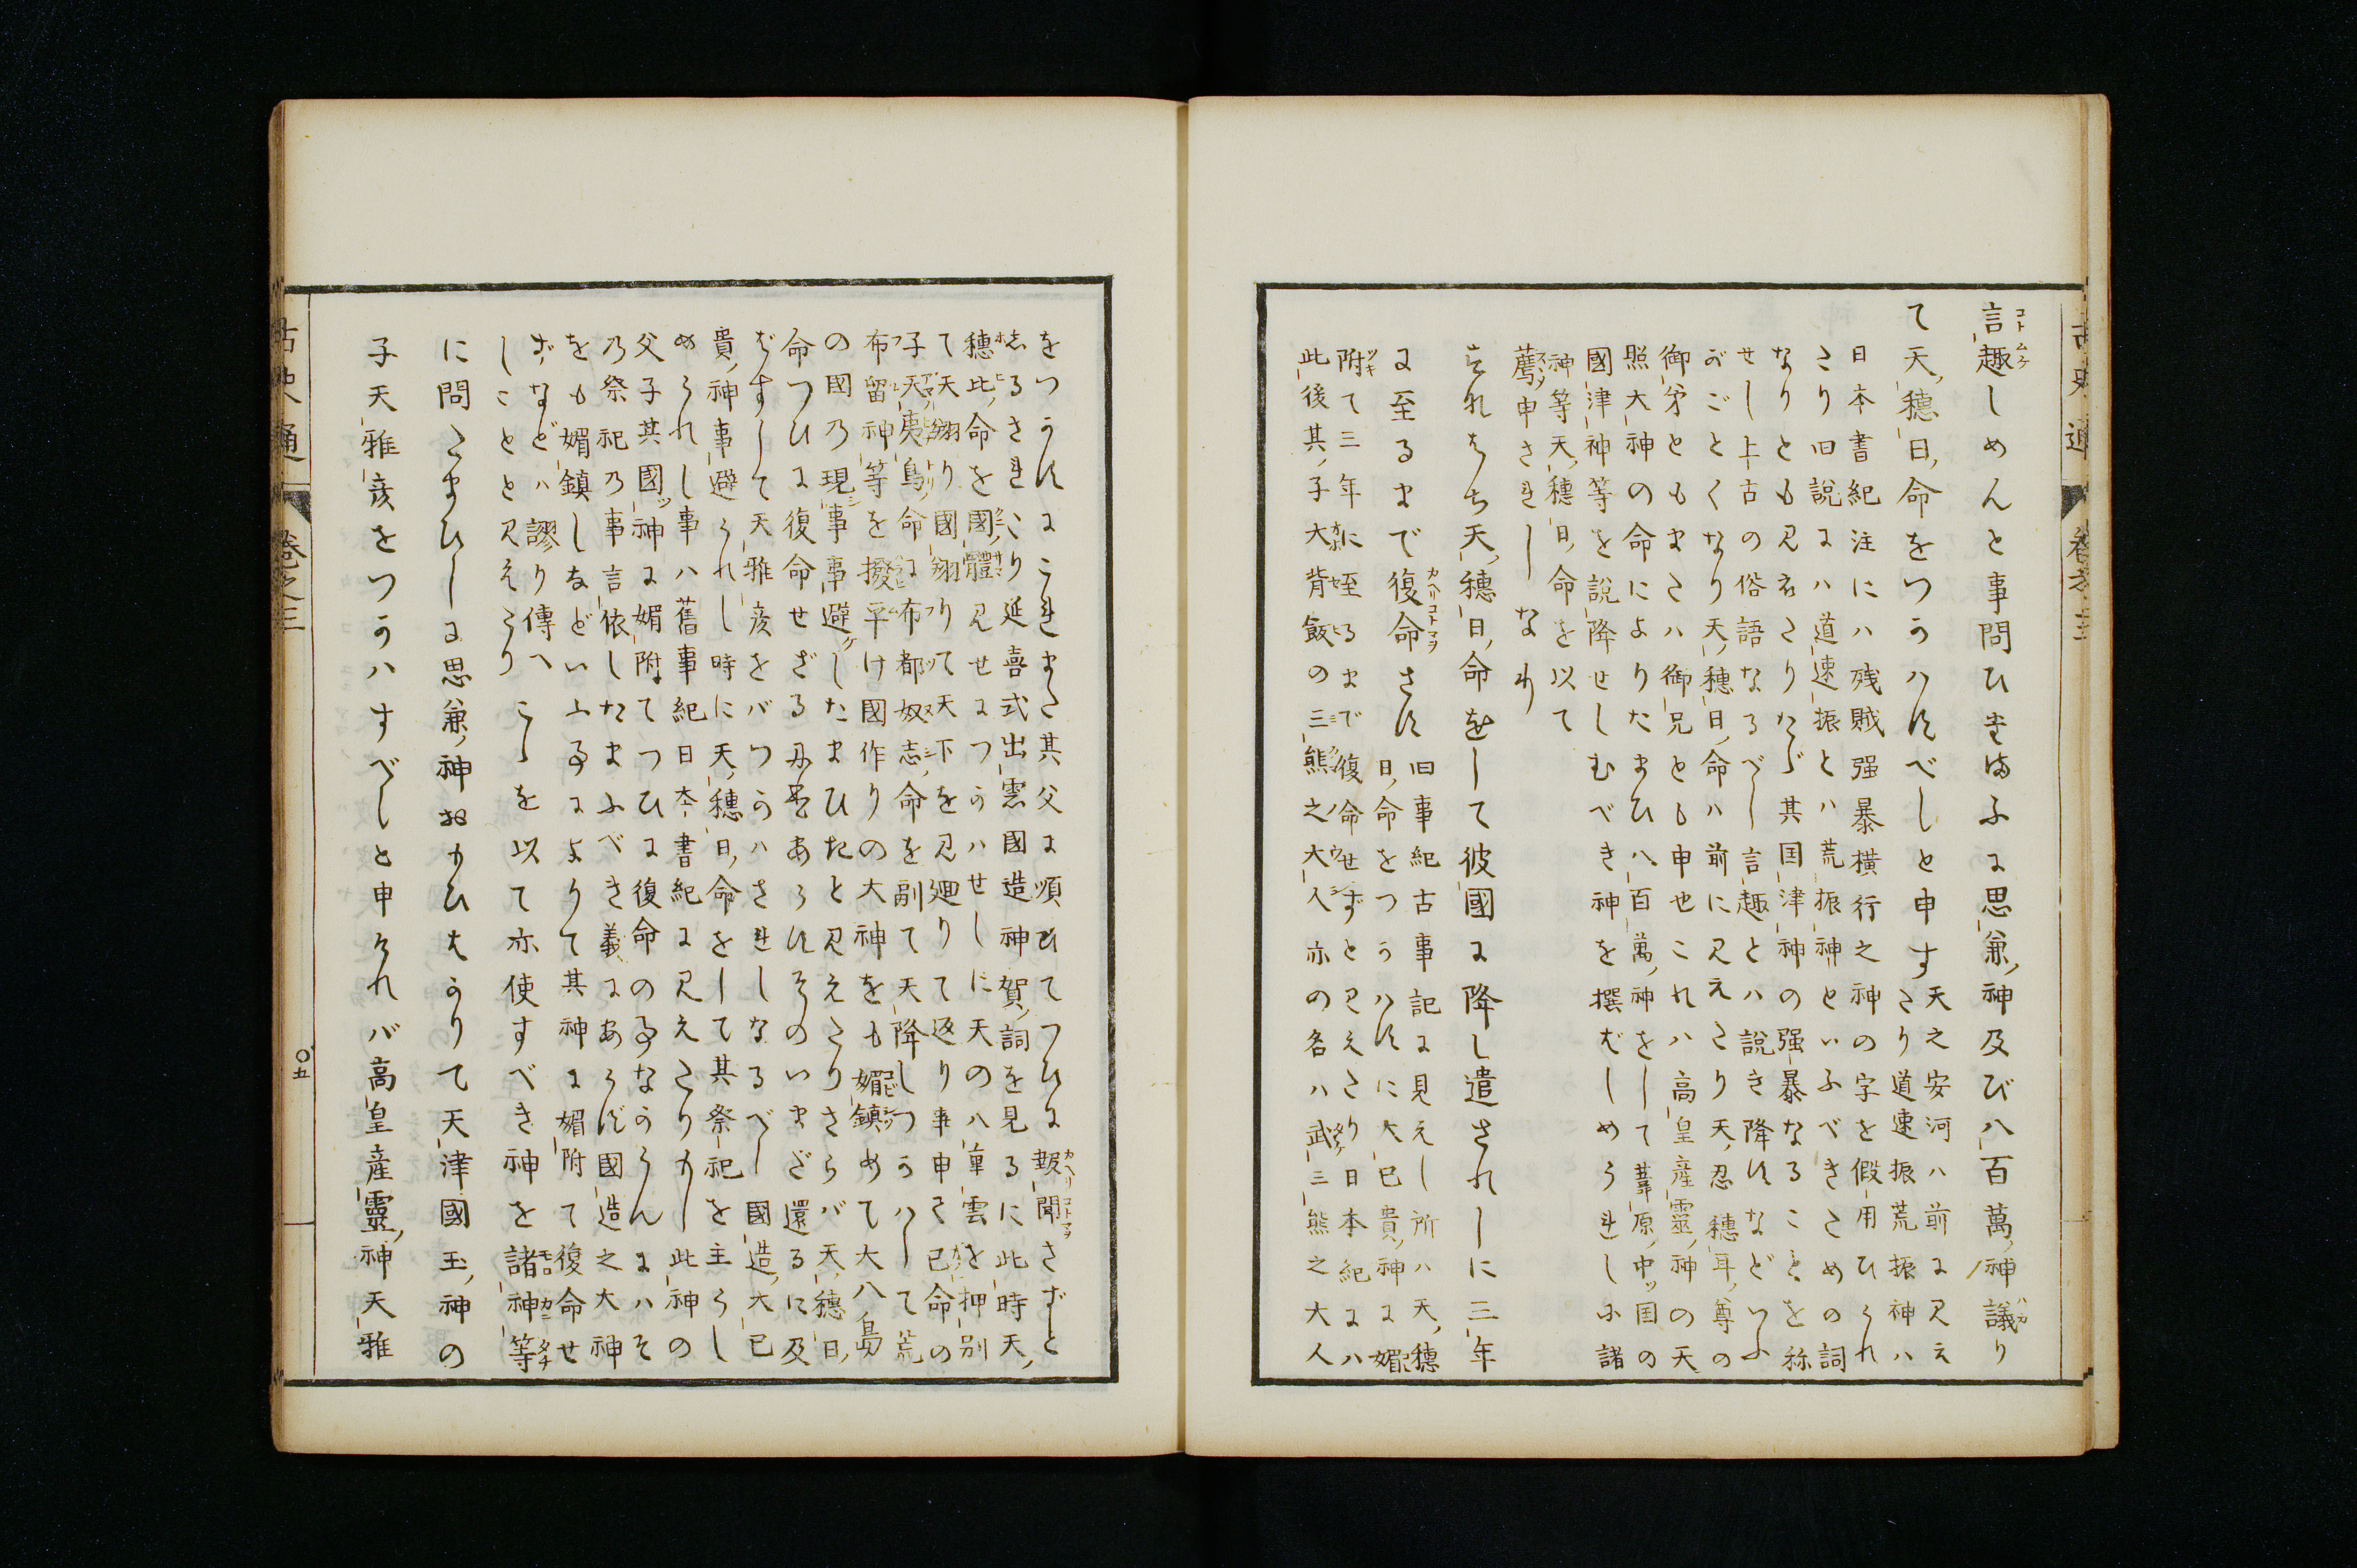 言趣しめんと事問ひたまふに思兼神及び八百萬神議り
て天穂日命をつかハすべしと申す
天之安河ハ前に見え
たり道速振荒振神ハ
日本書紀注にハ残賊强暴横行之神の字を假用ひられ
たり旧説にハ道速振とハ荒振神といふべきための詞
なりとも見えたりたゞ其国津神の强暴なることを称
せし上古の俗語なるべし言趣とハ説き降すなどいふ
がごとくなり天穂日命ハ前に見えたり天忍穂耳尊の
御弟ともまたハ御兄とも申也これハ高皇産靈神の天
照大神の命によりたまひ八百萬神をして葦原中国の
國津神等を説降せしむべき神を撰ばしめられしに諸
神等天穂日命を以て
薦申されしなり
それすなはち天穂日命をして彼國に降し遣されしに三年
に至るまで復命さす
旧事紀古事記に見えし所ハ天穂
日命をつかハすに大已貴神に媚
附て三年に至るまで復命せずと見えたり日本紀にハ
此後其子大背飯の三熊之大人亦の名ハ武三熊之大人
をつかすにこれまた其父に順ひてつひに報聞さずと
しるされたり延喜式出雲國造神賀詞を見るに此時天
穂比命を國體見せにつかハせしに天の八重雲を押別
て天翔り國翔りて天下を見廻りて返り事申て已命の
子天夷鳥命に布都奴志命を副て天降しつかハして荒
布留神等を撥平け國作りの大神をも媚鎮めて大八島
の國乃現事事避したまひたと見えたりさらバ天穂日
命つひに復命せざるに及あらすそのいまだ還るに及
ばずして天雅彦をバつかハされしなるべし國造大已
貴神事避られし時に天穂日命をして其祭祀を主らし
められし事ハ舊事紀日本書紀に見えたりもし此神の
父子其國神に媚附てつひに復命の事なからんにハそ
乃祭祀乃事言依したまふべき義にあらず國造之大神
をも媚鎮しなどいふ事によりて其神に媚附て復命せ
ずなどハ謬り傳へ
しことと見えたり
こゝを以て亦使すべき神を諸神等
に問たまひしに思兼神おもひはかりて天津國玉神の
子天雅彦をつかハすべしと申けれバ高皇産靈神天雅
古史通
卷之三
〇五